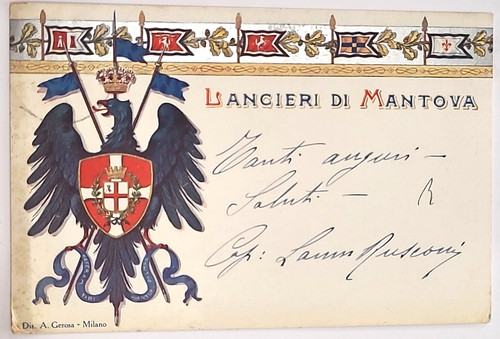 LANCIERI DI MANTOVA
Tanti auguri —
Saluti —
Cap: Rusconi
Dis. A. Gerosa - Milano